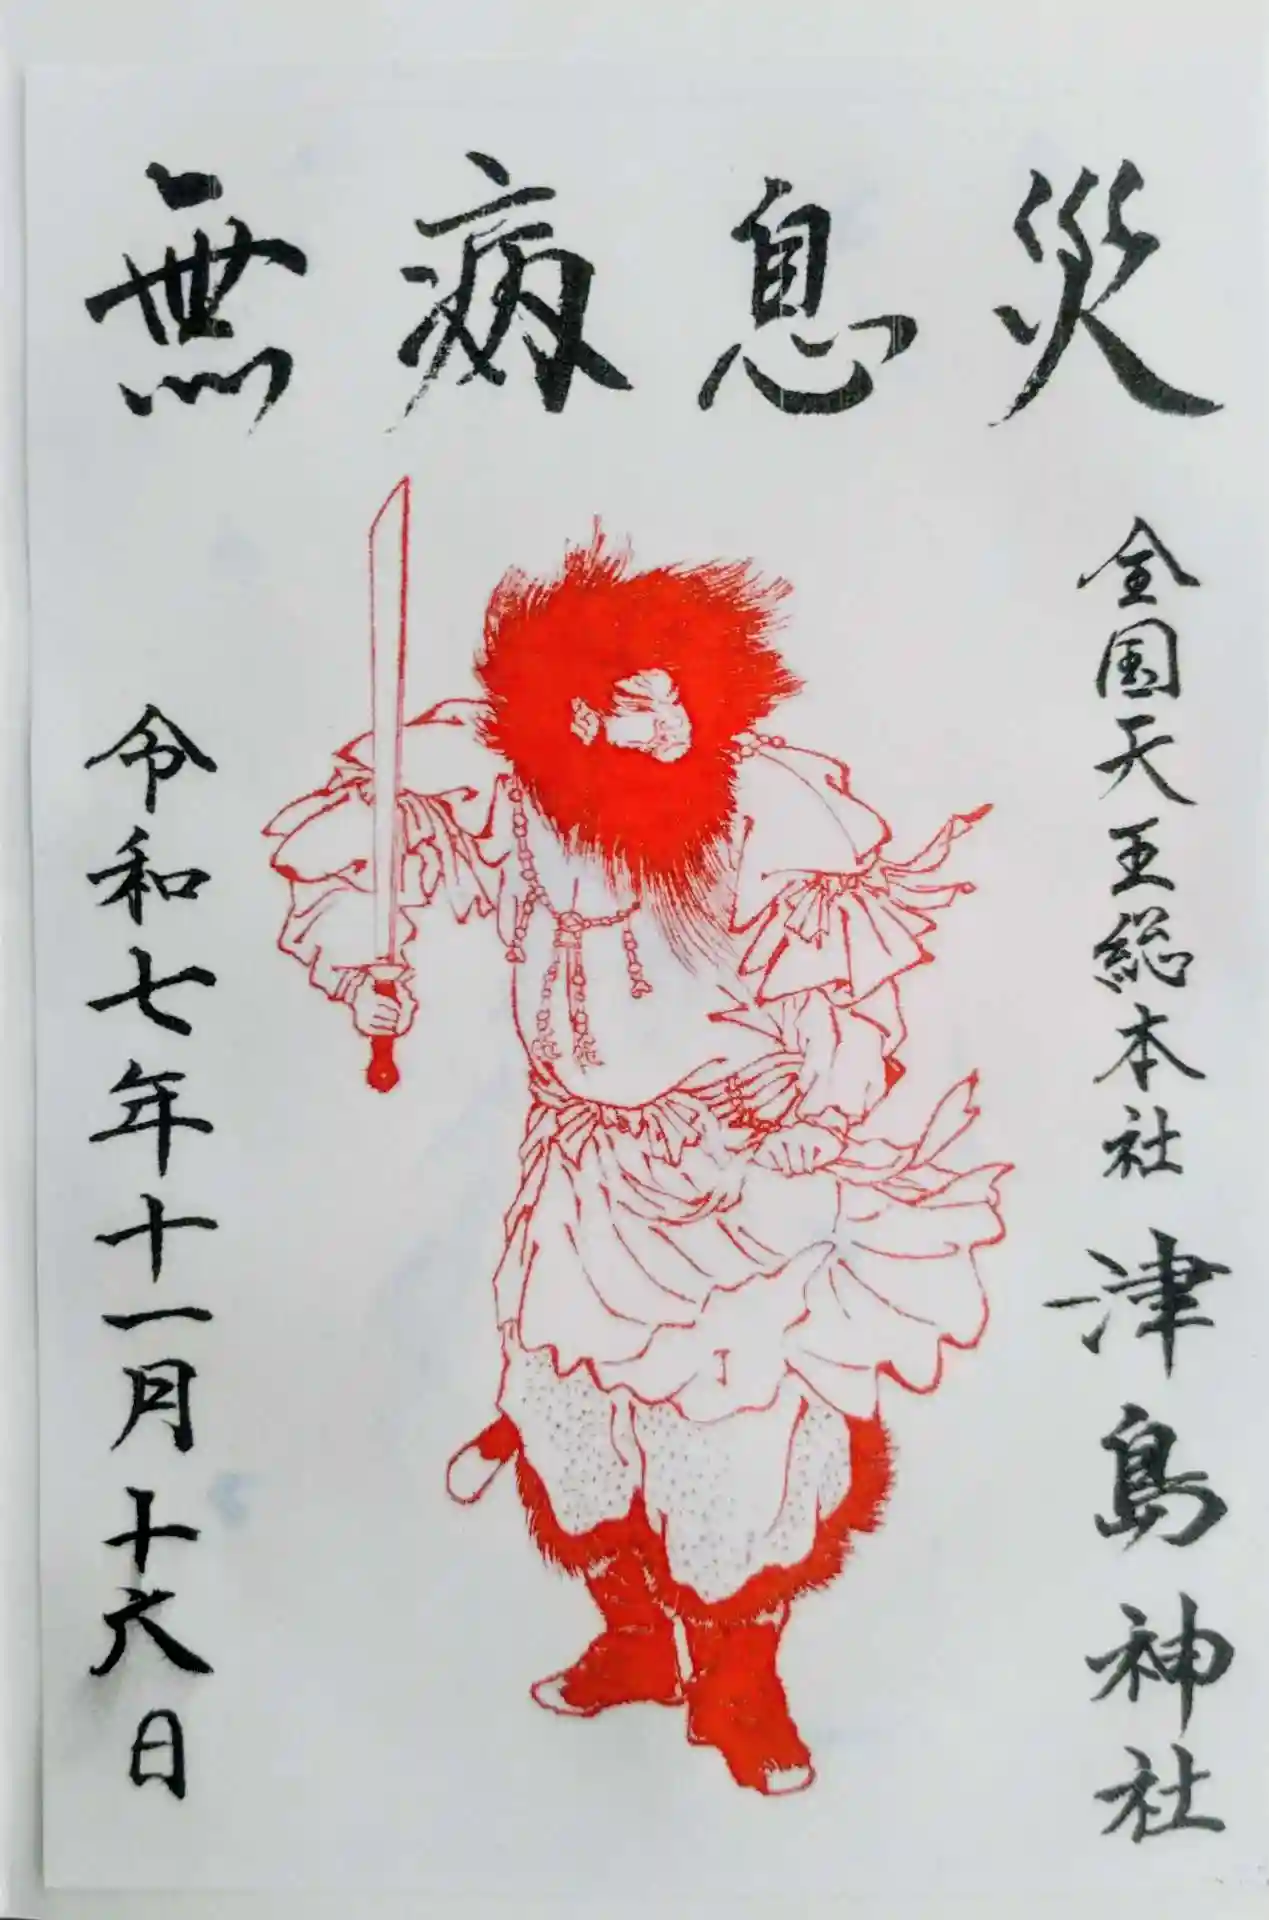 無病息災
全国天王総本社 津島神社
令和七年十一月十六日